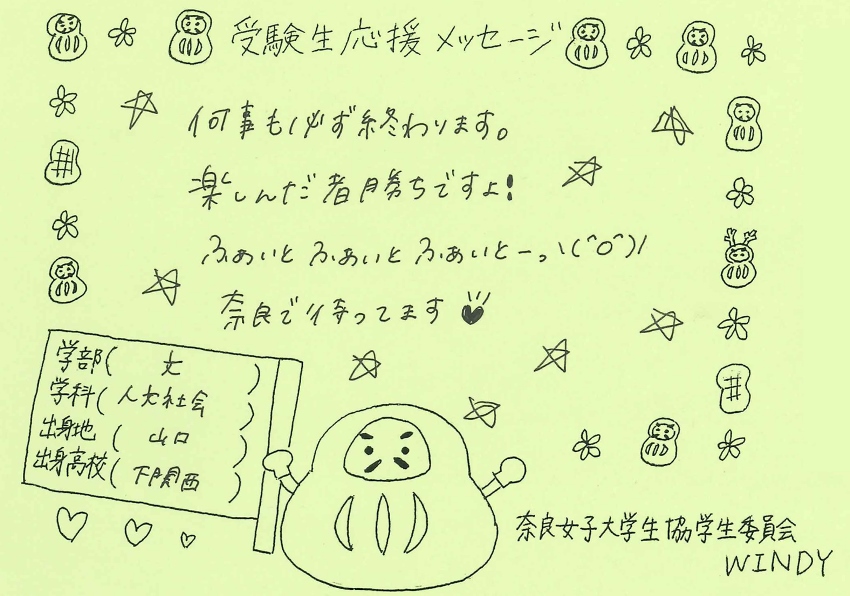 受験生応援メッセージ
何事も必ず終わります。
楽しんだ者勝ちですよ!
ふぁいと ふぁいと ふぁいとーっ \(^o^)/
奈良で待ってます
学部( 文 )
学科( 人文社会 )
出身地( 山口 )
出身高校( 下関西 )
奈良女子大学生協学生委員会
WINDY